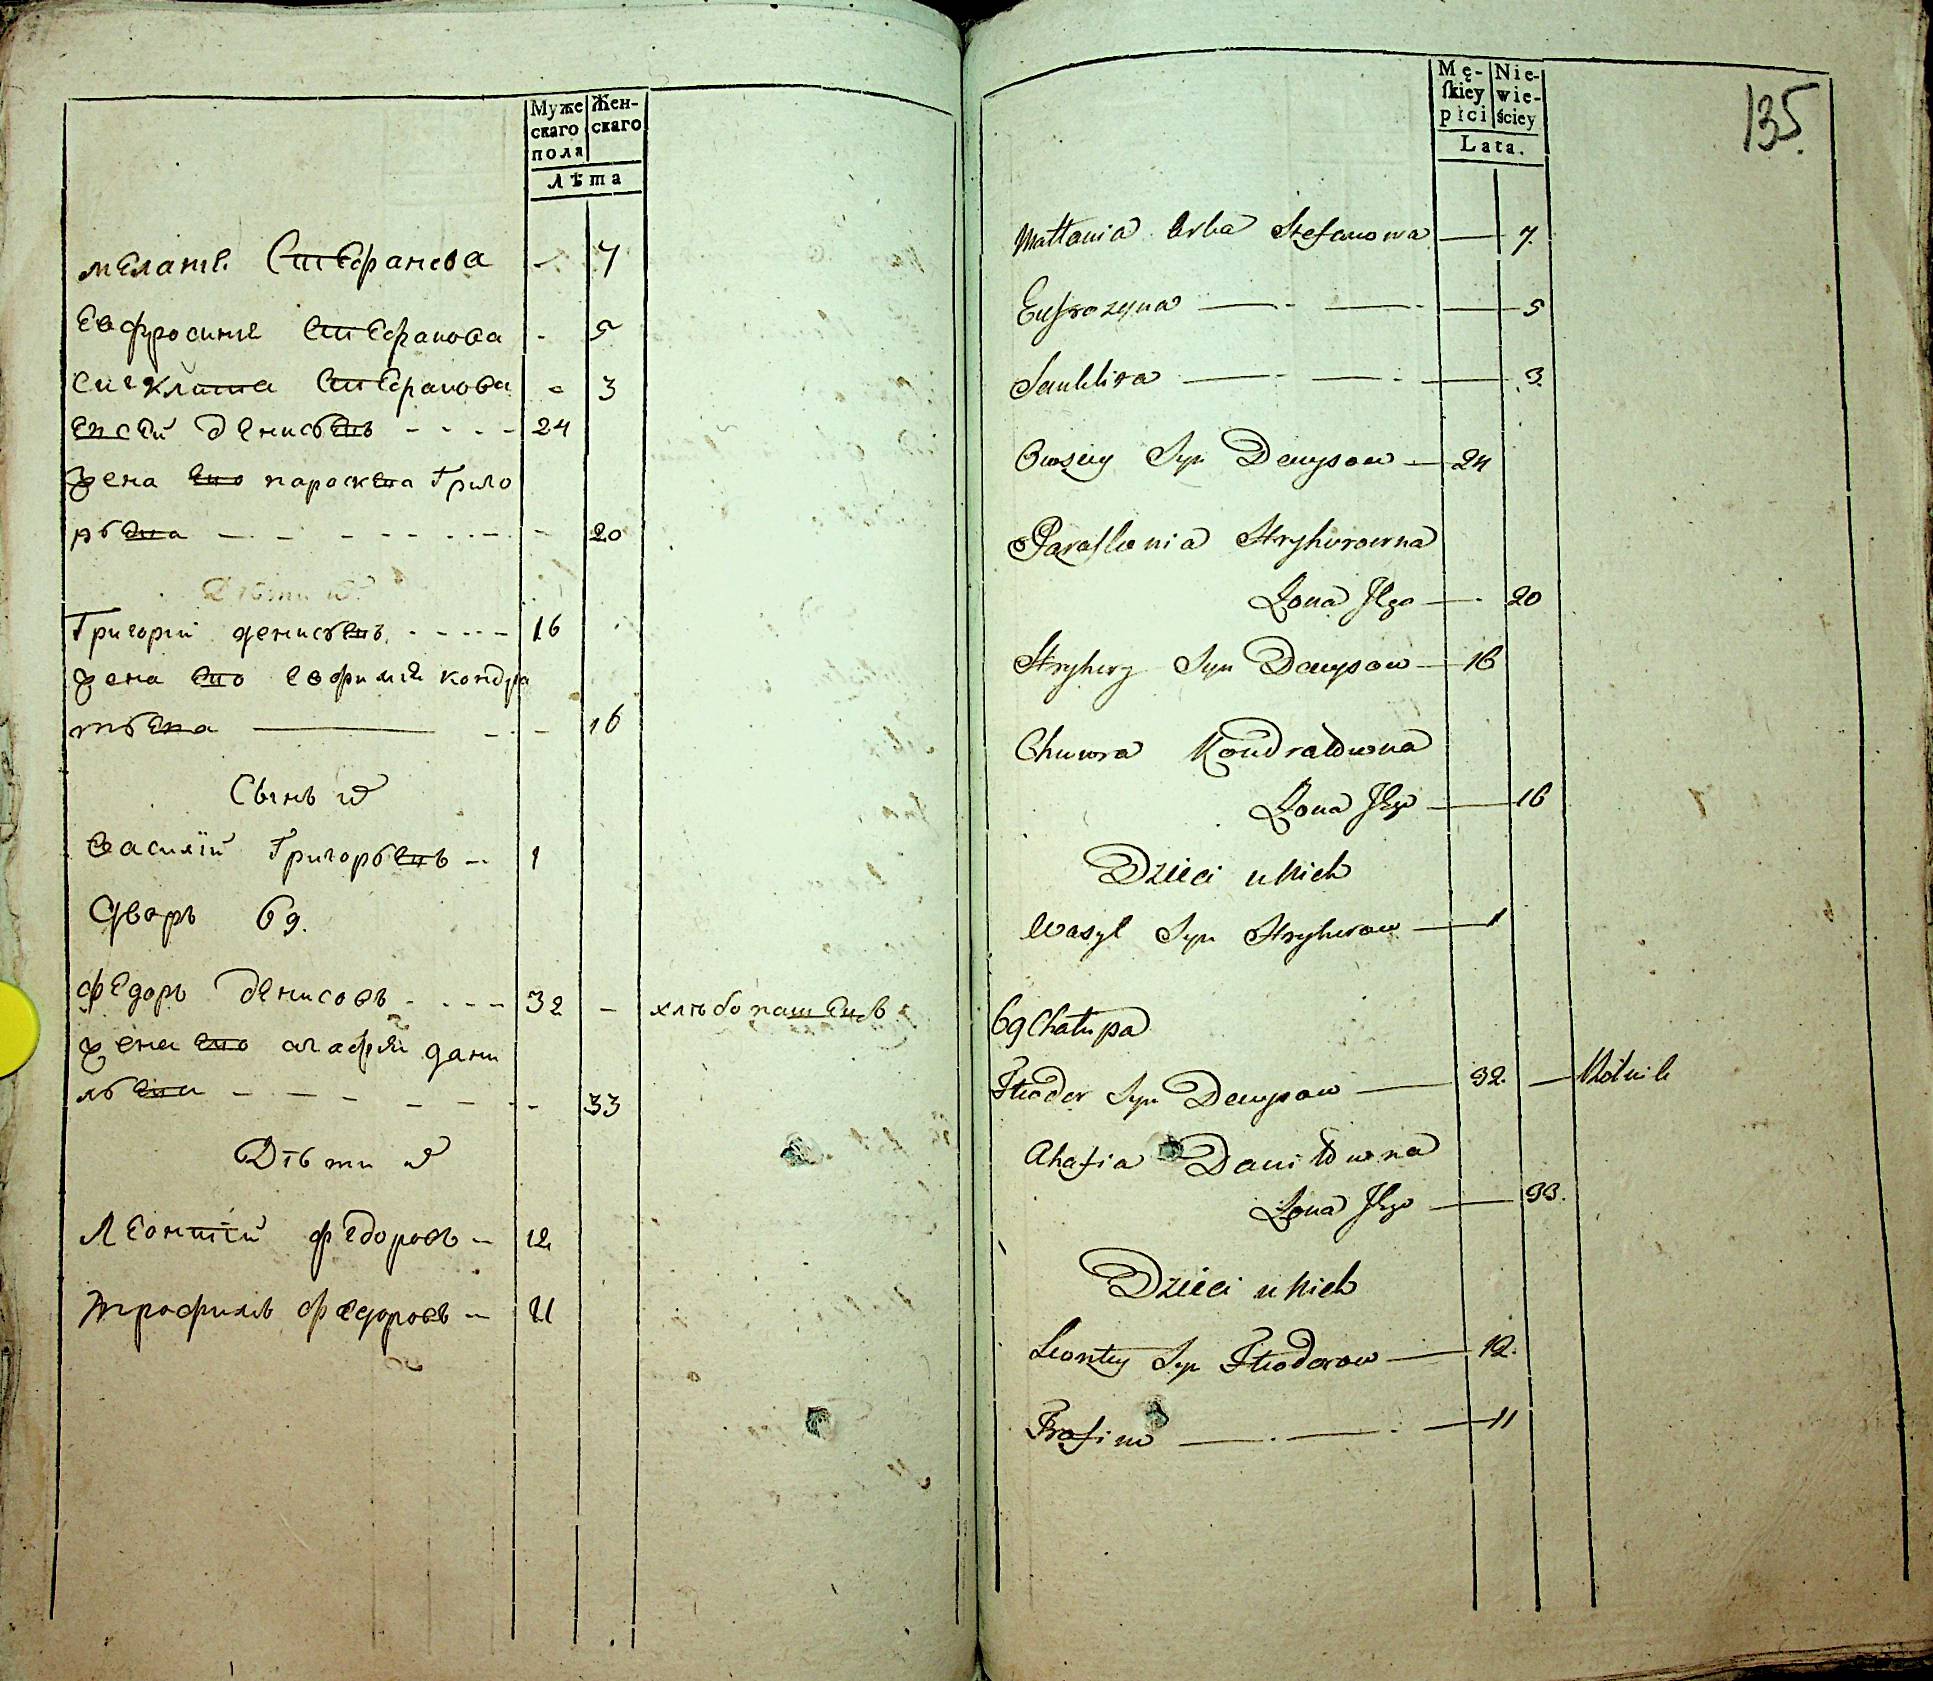 Муже
скаго
пола
Жен-
скаго
лѣта
меланіѣ Степанова - 7
Евфросиніе Степанова - 5
Сигклита Степанова - 3
Евсѣй денисьевъ - - - - 24
жена его парасковѣа Григо
рьева - - - - - - - - 20
Дѣти их
Григорій денисьевъ - - - - 16
жена его евфимія кондра
тьева - - 16
Сынъ их
Василій Григорьевъ - 1
Дворъ 69.
федоръ денисовъ - - - - 32 - хлѣбопашецъ
жена его агафія дани
льева - - - - - - - 33
Дѣти их
Леонтій федоровъ - 12
трофимъ федоровъ - 11
Mę-
skiey
płci
Nie-
wie-
ściey
Lata.
135.
Małania Crka Stefanowa — 7.
Eufrozyna — - — - — 5
Senklita — — - — 3.
Owsiey Syn Denysow — 24
Paraskewia Hryhorowna
Żona Jego — - 20
Hryhory Syn Denysow — 16
Chwora Kondratowna
Żona Jego — 16
Dzieci u Nich
Wasyl Syn Hryhorow — 1
69 Chałupa
Fteodor Syn Denysow — 32. — Rolnik
Ahafia Daniłowna
Żona Jego — 33.
Dzieci u Nich
Leonty Syn Fteodorow — 12.
Trofim — . — . — 11